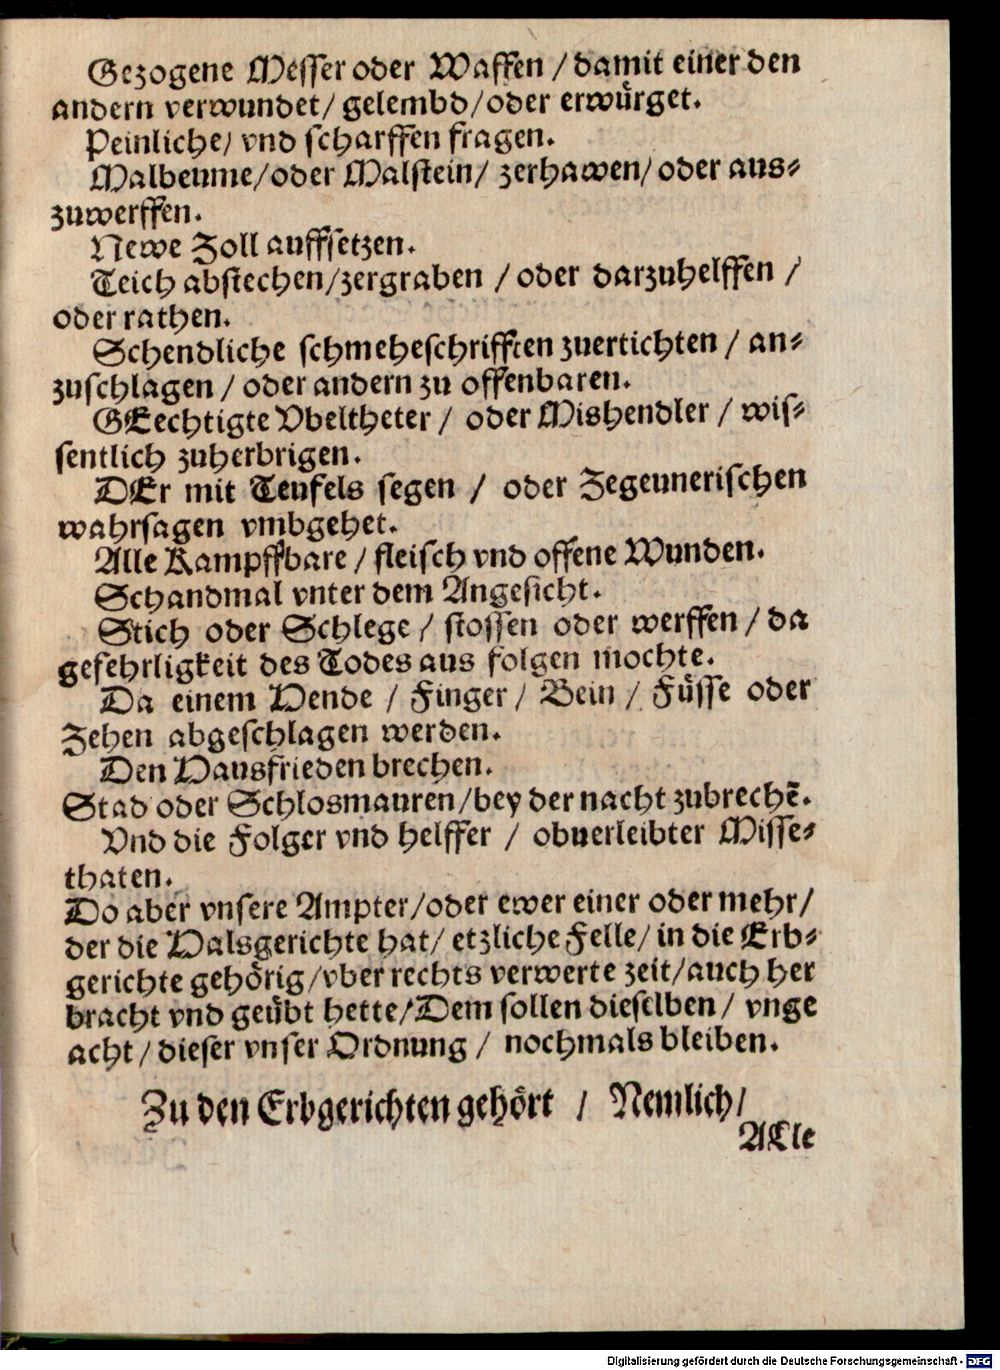 Gezogene Messer oder Waffen / damit einer den
andern verwundet / gelembd / oder erwürget.
Peinliche / vnd scharffen fragen.
Malbeume / oder Malstein / zerhawen / oder aus-
zuwerffen.
Newe Zoll auffsetzen.
Teich abstechen / zergraben / oder darzuhelffen /
oder rathen.
Schendliche schmeheschrifften zuertichten / an-
zuschlagen / oder andern zu offenbaren.
GEechtigte Vbeltheter / oder Mishendler / wis-
sentlich zuherbrigen.
DEr mit Teufels segen / oder Zegeunerischen
wahrsagen vmbgehet.
Alle Kampffbare / fleisch vnd offene Wunden.
Schandmal vnter dem Angesicht.
Stich oder Schlege / stossen oder werffen / da
gefehrligkeit des Todes aus folgen möchte.
Da einem Hende / Finger / Bein / Füsse oder
Zehen abgeschlagen werden.
Den Hausfrieden brechen.
Stad oder Schlosmauren / bey der nacht zubrechẽ.
Vnd die Folger vnd helffer / obuerleibter Misse-
thaten.
Do aber vnsere Ampter / oder ewer einer oder mehr /
der die Halsgerichte hat / etzliche Felle / in die Erb-
gerichte gehörig / vber rechts verwerte zeit / auch her
bracht vnd geübt hette / Dem sollen dieselben / vnge
acht / dieser vnser Ordnung / nochmals bleiben.
Zu den Erbgerichten gehört / Nemlich /
ALle
Digitalisierung gefördert durch die Deutsche Forschungsgemeinschaft - DFG